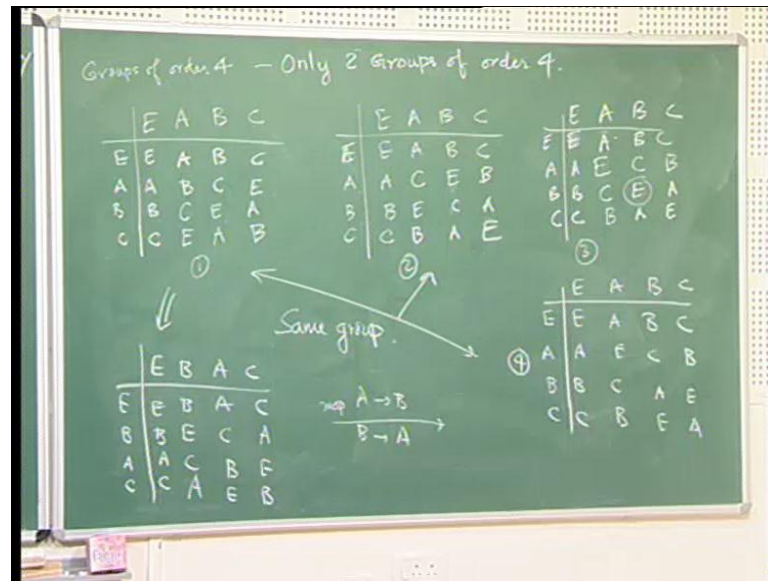 Groups of order 4 - Only 2 Groups of order 4.
E A B C
E E A B C
A A B C E
B B C E A
C C E A B
①
E A B C
E E A B C
A A C E B
B B E C A
C C B A E
②
E A B C
E E A B C
A A E C B
B B C E A
C C B A E
③
Same group.
E A B C
E E A B C
④ A A E C B
B B C A E
C C B E A
E B A C
E E B A C
B B E C A
A A C B E
C C A E B
A → B
B → A